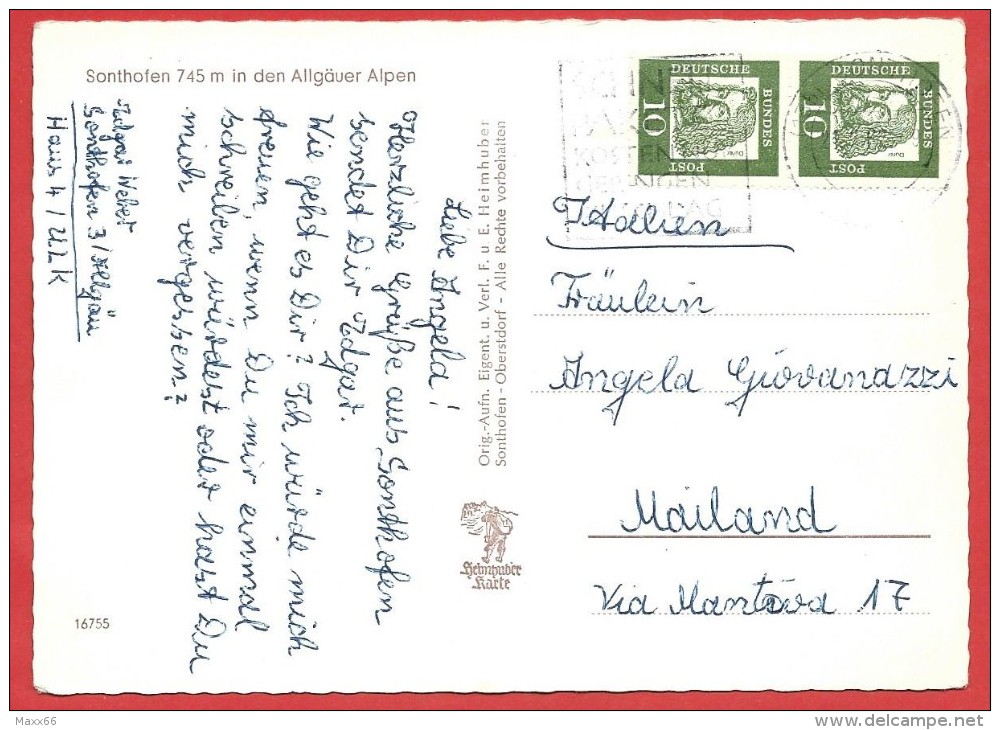 Sonthofen 745 m in den Allgäuer Alpen
Edgar Weber
Sonthofen 3 / Allgäu
Haus 4 / ULK
Liebe Angela!
Herzliche Grüße aus Sonthofen
sendet Dir Edgar.
Wie geht es Dir? Ich würde mich
freuen, wenn Du mir einmal
schreiben würdest oder hast Du
mich vergessen?
16755
Orig.-Aufn. Eigent. u. Verl. F. u. E. Heimhuber
Sonthofen - Oberstdorf - Alle Rechte vorbehalten
Heimhuber
Karte
DEUTSCHE
BUNDES
POST
10
Dürer
DEUTSCHE
BUNDES
POST
10
Dürer
KOSTEN
Italien
Fräulein
Angela Giovanazzi
Mailand
Via Mantova 17
Maxx66
www.delcampe.net